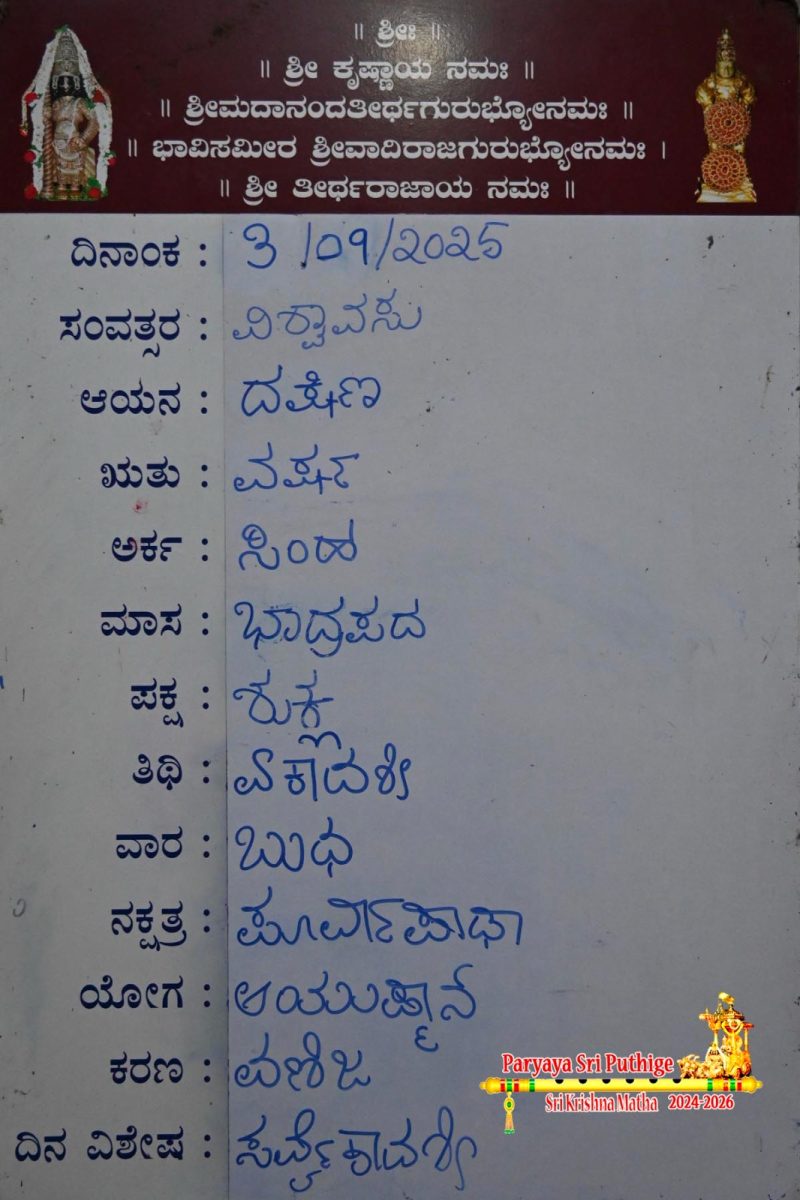 ॥ ಶ್ರೀಃ ॥
॥ ಶ್ರೀ ಕೃಷ್ಣಾಯ ನಮಃ ॥
॥ ಶ್ರೀಮದಾನಂದತೀರ್ಥಗುರುಭ್ಯೋನಮಃ ॥
॥ ಭಾವಿಸಮೀರ ಶ್ರೀವಾದಿರಾಜಗುರುಭ್ಯೋನಮಃ ।
॥ ಶ್ರೀ ತೀರ್ಥರಾಜಾಯ ನಮಃ ॥
ದಿನಾಂಕ : 3 /09/೨೦೨5
ಸಂವತ್ಸರ : ವಿಶ್ವಾವಸು
ಆಯನ : ದಕ್ಷಿಣ
ಋತು : ವರ್ಷ
ಅರ್ಕ : ಸಿಂಹ
ಮಾಸ : ಭಾದ್ರಪದ
ಪಕ್ಷ : ಶುಕ್ಲ
ತಿಥಿ : ಏಕಾದಶೀ
ವಾರ : ಬುಧ
ನಕ್ಷತ್ರ : ಪೂರ್ವಾಷಾಢಾ
ಯೋಗ : ಆಯುಷ್ಮಾನ್
ಕರಣ : ವಣಿಜ
ದಿನ ವಿಶೇಷ : ಸರ್ವೈಕಾದಶೀ
Paryaya Sri Puthige
Sri Krishna Matha 2024-2026